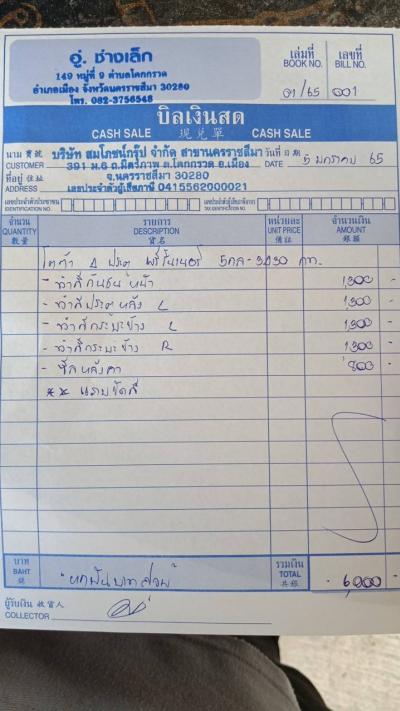 อู่ ช่างเล็ก
149 หมู่ที่ 9 ตำบลโคกกรวด
อำเภอเมือง จังหวัดนครราชสีมา 30280
โทร. 082-3756548
เล่มที่ เลขที่
BOOK NO. BILL NO.
01/65 001
บิลเงินสด
CASH SALE 現兌單 CASH SALE
นาม 寶號 บริษัท สมโภชน์กรุ๊ป จำกัด สาขานครราชสีมา วันที่ 日期 5 มกราคม 65
CUSTOMER 391 ม.6 ถ.มิตรภาพ ต.โคกกรวด อ.เมือง DATE
ที่อยู่ 住址 จ.นครราชสีมา 30280
ADDRESS เลขประจำตัวผู้เสียภาษี 0415562000021
เลขประจำตัวประชาชน เลขประจำตัวผู้เสียภาษีอากร
IDENTIFICATION NO. TAX IDENTIFICATION NO.
จำนวน รายการ หน่วยละ จำนวนเงิน
QUANTITY DESCRIPTION UNIT PRICE AMOUNT
數量 貨名 備註 銀額
4 ประตู 3030 กท.
- ทำสีกันชนหน้า 1300 -
- ทำสีประตูหลัง L 1300 -
- ทำสีกระบะข้าง L 1300 -
- ทำสีกระบะข้าง R 1300 -
- สีหลังคา 800 -
** แถมขัดสี
บาท รวมเงิน
BAHT "หกพันบาทถ้วน" TOTAL 6,000 -
銖 共銀
ผู้รับเงิน 收貨人
COLLECTOR